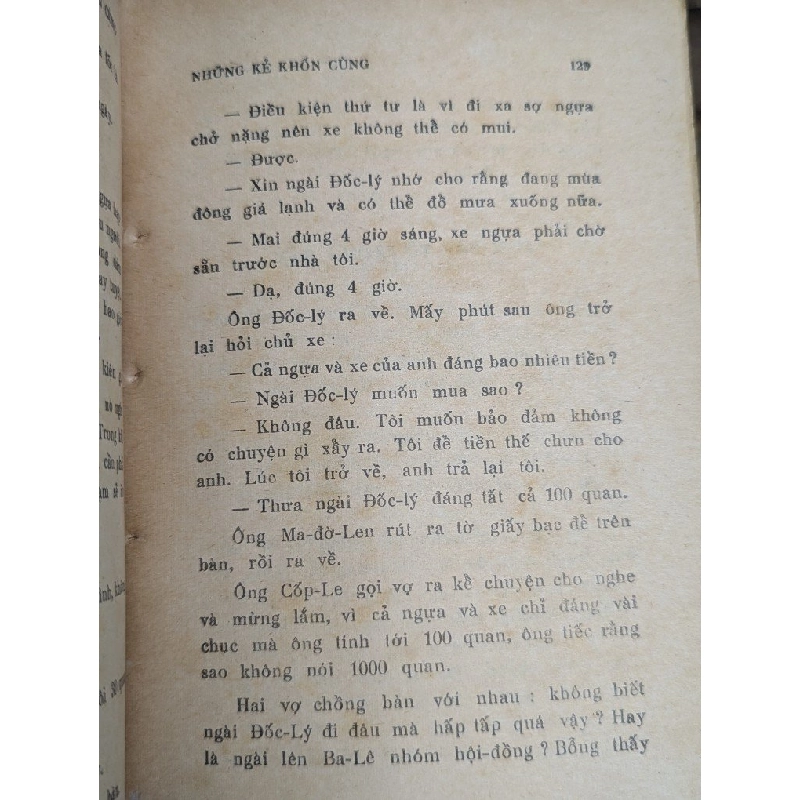 NHỮNG KẺ KHỐN CÙNG 129
— Điều kiện thứ tư là vì đi xa sợ ngựa
chở nặng nên xe không thể có mui.
— Được.
— Xin ngài Đốc-lý nhớ cho rằng đang mùa
đông giá lạnh và có thể đổ mưa xuống nữa.
— Mai đúng 4 giờ sáng, xe ngựa phải chờ
sẵn trước nhà tôi.
— Dạ, đúng 4 giờ.
Ông Đốc-lý ra về. Mấy phút sau ông trở
lại hỏi chủ xe :
— Cả ngựa và xe của anh đáng bao nhiên tiền ?
— Ngài Đốc-lý muốn mua sao ?
— Không đâu. Tôi muốn bảo đảm không
có chuyện gì xẩy ra. Tôi để tiền thế chưn cho
anh. Lúc tôi trở về, anh trả lại tôi.
— Thưa ngài Đốc-lý đáng tất cả 100 quan.
Ông Ma-đờ-Len rút ra tờ giấy bạc để trên
bàn, rồi ra về.
Ông Cốp-Le gọi vợ ra kể chuyện cho nghe
và mừng lắm, vì cả ngựa và xe chỉ đáng vài
chục mà ông tính tới 100 quan, ông tiếc rằng
sao không nói 1000 quan.
Hai vợ chồng bàn với nhau : không biết
ngài Đốc-Lý đi đâu mà hấp tấp quá vậy ? Hay
là ngài lên Ba-Lê nhóm hội-đồng ? Bỗng thấy